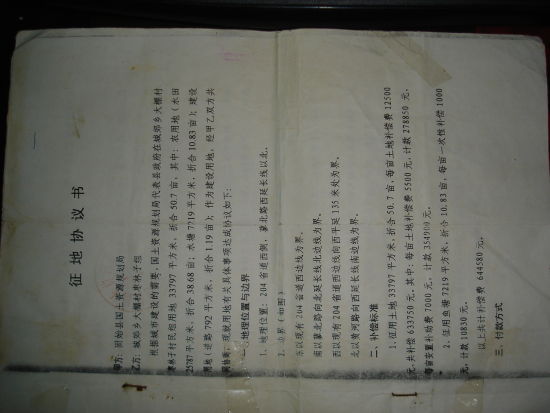 征地协议书
甲方：固始县国土资源规划局
乙方：城郊乡大棚村枣林子组
根据城市建设的需要，国土资源规划局代表县政府在城郊乡大棚村
枣林子村民组用地 33797 平方米，折合 50.7 亩，其中：农用地（水田
25787 平方米，折合 38.68 亩；水塘 7219 平方米，折合 10.83 亩）；建设
用地（道路 792 平方米，折合 1.19 亩）；作为建设用地，经甲乙双方共
同协商，现就用地有关具体事项达成协议如下：
一、地理位置与边界
1、地理位置：204 省道西侧，蓼北路西延长线以北。
2、边界（如图）
东以现有 204 省道西边线为界。
南以蓼北路向北延长线北边线为界。
西以现有 204 省道西边线向西平延 135 米处为界。
北以黄河路向西延长线南边线为界。
二、补偿标准
1、征用土地 33797 平方米，折合 50.7 亩，每亩土地补偿费 12500
元，共补偿 633750 元。其中：每亩土地补偿费 5500 元，计款 278850 元，
每亩安置补助费 7000 元，计款 354900 元。
2、征用鱼塘 7219 平方米，折合 10.83 亩，每亩一次性补偿 1000
元，计款 10830 元。
以上共计补偿费 644580 元。
三、付款方式